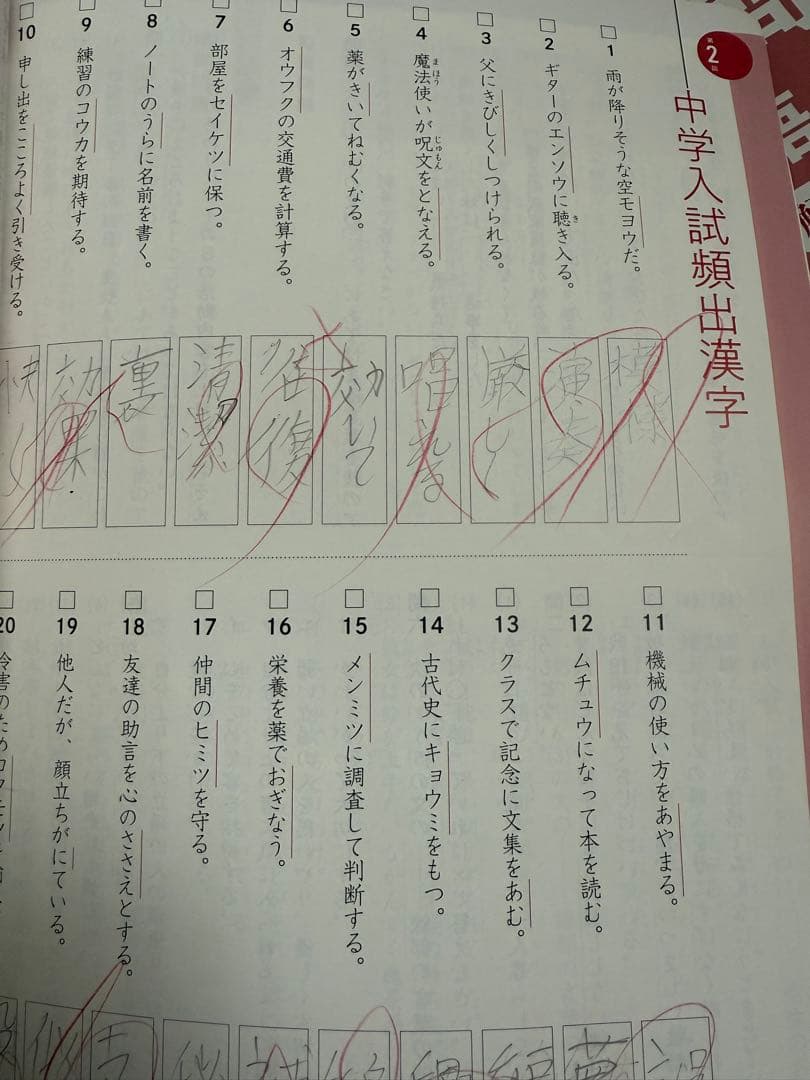 第2回
中学入試頻出漢字
1 雨が降りそうな空モヨウだ。
模様
2 ギターのエンソウに聴き入る。
演奏
3 父にきびしくしつけられる。
厳し
4 魔法使いが呪文をとなえる。
唱える
5 薬がきいてねむくなる。
効いて
6 オウフクの交通費を計算する。
往復
7 部屋をセイケツに保つ。
清潔
8 ノートのうらに名前を書く。
裏
9 練習のコウカを期待する。
効果
10 申し出をこころよく引き受ける。
快く
11 機械の使い方をあやまる。
12 ムチュウになって本を読む。
13 クラスで記念に文集をあむ。
14 古代史にキョウミをもつ。
15 メンミツに調査して判断する。
16 栄養を薬でおぎなう。
17 仲間のヒミツを守る。
18 友達の助言を心のささえとする。
19 他人だが、顔立ちがにている。
20